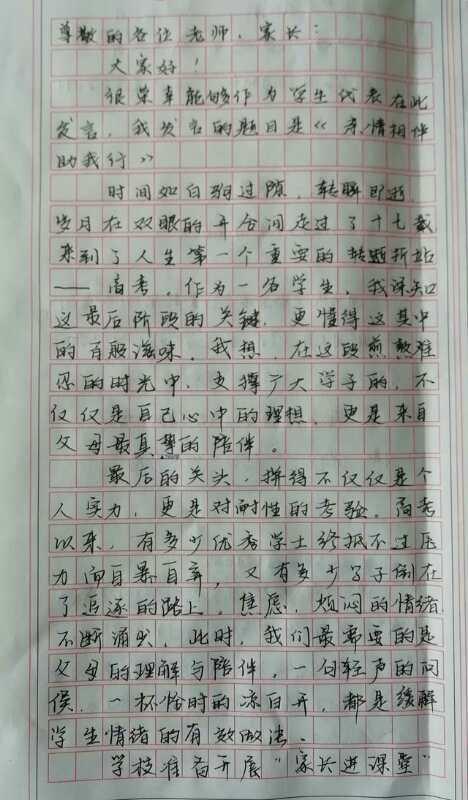 尊敬的各位老师、家长：
大家好！
很荣幸能够作为学生代表在此
发言，我发言的题目是《亲情相伴
助我行》
时间如白驹过隙，转瞬即逝，
岁月在双眼的开合间走过了十七载
来到了人生第一个重要的转折站
——高考，作为一名学生，我深知
这最后阶段的关键，更懂得这其中
的百般滋味。我想，在这段煎熬难
忍的时光中，支撑广大学子的，不
仅仅是自己心中的理想，更是来自
父母最真挚的陪伴。
最后的关头，拼得不仅仅是个
人实力，更是对耐性的考验。高考
以来，有多少优秀学士终抵不过压
力而自暴自弃，又有多少学子倒在
了追逐的路上，焦虑，烦闷的情绪
不断涌出，此时，我们最需要的是
父母的理解与陪伴，一句轻声的问
侯，一杯恰时的凉白开，都是缓解
学生情绪的有效做法。
学校准备开展“家长进课堂”